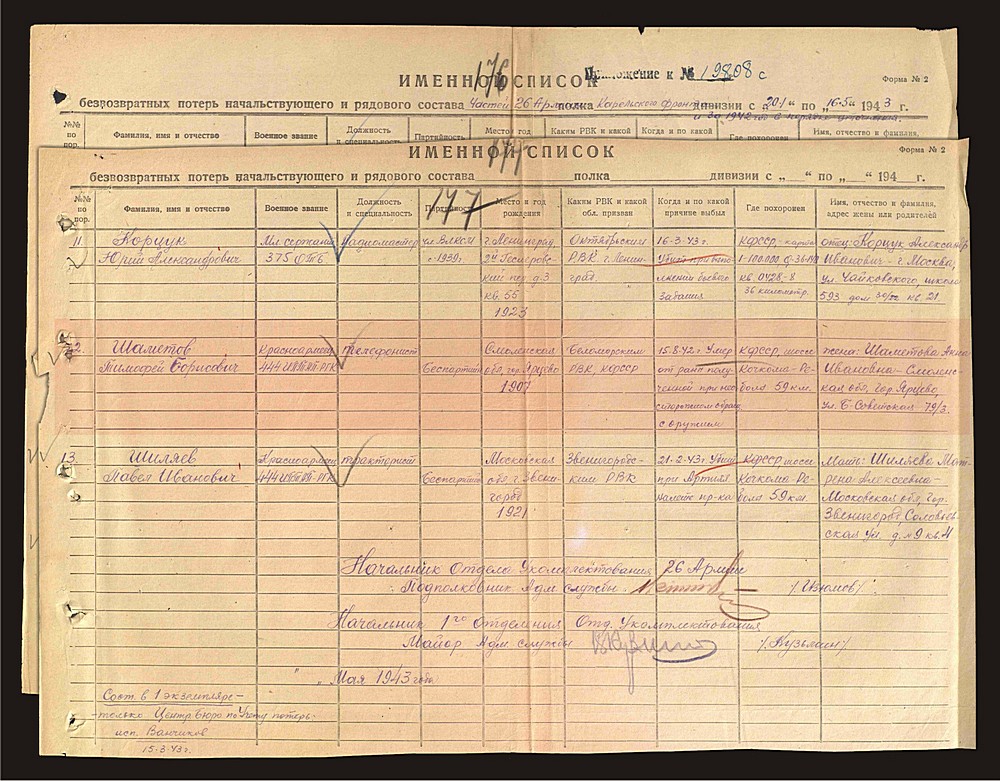 176
Приложение к № 19808 с
ИМЕННОЙ СПИСОК
Форма № 2
безвозвратных потерь начальствующего и рядового состава Частей 26 Армии полка Карельского фронта дивизии с „20.1“ по „16.5“ 1943 г.
и за 1942 год в порядке
№№ по пор.
Фамилия, имя и отчество
Военное звание
Должность и специальность
Партийность
Место и год
Каким РВК и какой
Когда и по какой
Где похоронен
Имя, отчество и фамилия,
177
ИМЕННОЙ СПИСОК
Форма № 2
безвозвратных потерь начальствующего и рядового состава полка дивизии с „ “ по „ “ 194 г.
177
№№ по пор.
Фамилия, имя и отчество
Военное звание
Должность и специальность
Партийность
Место и год рождения
Каким РВК и какой обл. призван
Когда и по какой причине выбыл
Где похоронен
Имя, отчество и фамилия, адрес жены или родителей
11.
Корщук
Юрий Александрович
Мл. сержант
375 ОТБ
Радиомастер
чл. ВЛКСМ
с 1939г.
г. Ленинград,
кий пер. д. 3
кв. 55
1923
Октябрьским
РВК г. Ленин-
град.
16-3-43г.
Убит при выпо-
лнении боевого
задания
КФССР, карта
1-100.000 Q-36-
кв. 0428-8
36 километр.
отец: Корщук Александр
Иванович - г. Москва,
ул. Чайковского, школа
593 дом кв. 21.
12.
Шаметов
Тимофей Борисович
Красноармеец
телефонист
Беспартийн
Смоленская
обл., гор. Ярцево
1907
Беломорским
РВК, КФССР
15.8.42г. Умер
от ран полу-
ченной при нео
сторожном обращ
с оружием
КФССР, шоссе
Кочкома-Ре-
бола 59 км.
жена: Шаметова Анна
Ивановна - Смоленс-
кая обл. Гор. Ярцево,
ул. Б-Советская 79/3.
13.
Шиляев
Павел Иванович
Красноармеец
тракторист
Беспартийн
Московская
обл. г. Звени-
город
1921
Звенигородс-
ким РВК
21-2-43г. Убит
при Артилл
налете пр-ка
КФССР, шоссе
Кочкома-Ре-
бола 59 км.
Мать: Шиляева Мат-
рена Алексеевна -
Московская обл., гор.
Звенигород, Соловьев-
ская ул. д. № 9 кв. 4
Начальник Отдела Укомплектования 26 Армии
Подполковник Адм. службы /Изюмов/
Начальник 1го Отделения Отд. Укомплектования
Майор Адм. службы /Кузьмин/
„ “ Мая 1943 года
Сост. в 1 экземпляре-
-только Центр Бюро по Учету потерь-
исп. Ванчиков
15-3-43г.